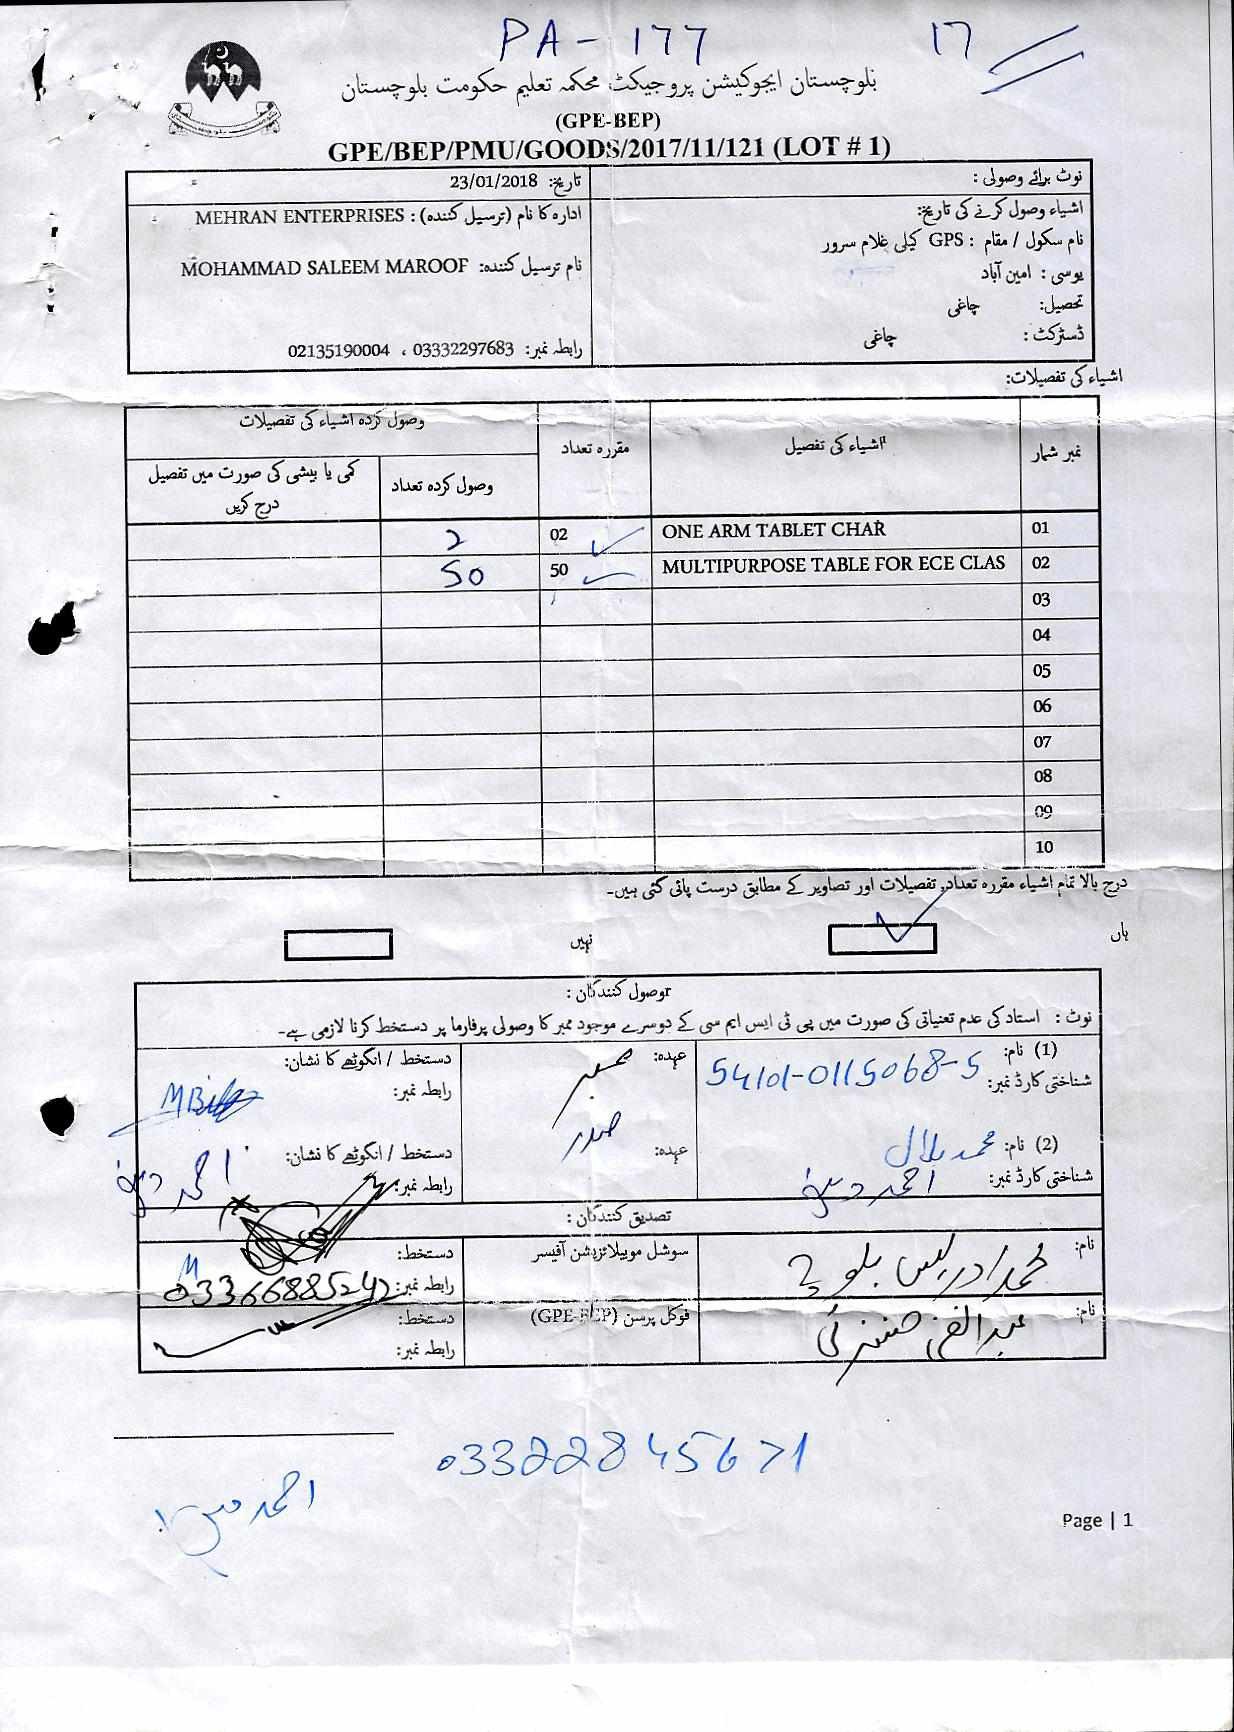 PA - 177
17
بلوچستان ایجوکیشن پروجیکٹ محکمہ تعلیم حکومت بلوچستان
(GPE-BEP)
GPE/BEP/PMU/GOODS/2017/11/121 (LOT # 1)
نوٹ برائے وصولی :
تاریخ: 23/01/2018
اشیاء وصول کرنے کی تاریخ:
نام سکول / مقام : GPS کیلی غلام سرور
یوسی : امین آباد
تحصیل: چاغی
ڈسٹرکٹ : چاغی
ادارہ کا نام (ترسیل کنندہ) : MEHRAN ENTERPRISES
نام ترسیل کنندہ: MOHAMMAD SALEEM MAROOF
رابطہ نمبر: 03332297683 ، 02135190004
اشیاء کی تفصیلات:
نمبر شمار اشیاء کی تفصیل مقررہ تعداد وصول کردہ اشیاء کی تفصیلات
وصول کردہ تعداد کمی یا بیشی کی صورت میں تفصیل درج کریں
01 ONE ARM TABLET CHAR 02 2
02 MULTIPURPOSE TABLE FOR ECE CLAS 50 50
03
04
05
06
07
08
09
10
درج بالا تمام اشیاء مقررہ تعداد، تفصیلات اور تصاویر کے مطابق درست پائی گئی ہیں۔
ہاں نہیں
وصول کنندگان :
نوٹ : استاد کی عدم تعنیاتی کی صورت میں پی ٹی ایس ایم سی کے دوسرے موجود ممبر کا وصولی پرفارما پر دستخط کرنا لازمی ہے۔
(1) نام: عہدہ: ممبر دستخط / انگوٹھے کا نشان:
شناختی کارڈ نمبر: 54101-0115068-5 رابطہ نمبر:
(2) نام: محمد بلال عہدہ: صدر دستخط / انگوٹھے کا نشان:
شناختی کارڈ نمبر: رابطہ نمبر:
تصدیق کنندگان :
نام: محمد ادریس بلوچ سوشل موبیلائزیشن آفیسر دستخط:
رابطہ نمبر: 03366885242
نام: فوکل پرسن (GPE-BEP) دستخط:
رابطہ نمبر:
03322845671
Page | 1